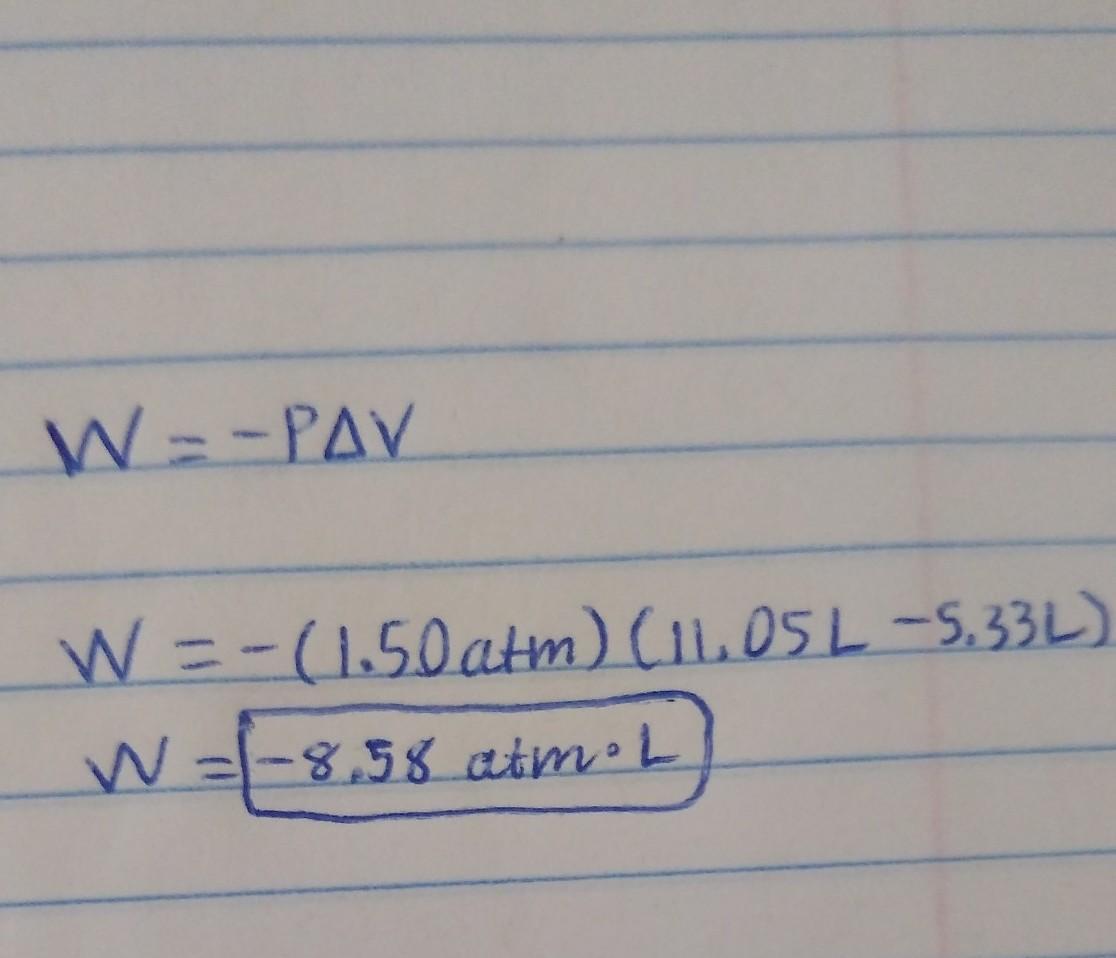 W = -PΔV
W = -(1.50 atm)(11.05 L - 5.33 L)
W = -8.58 atm·L